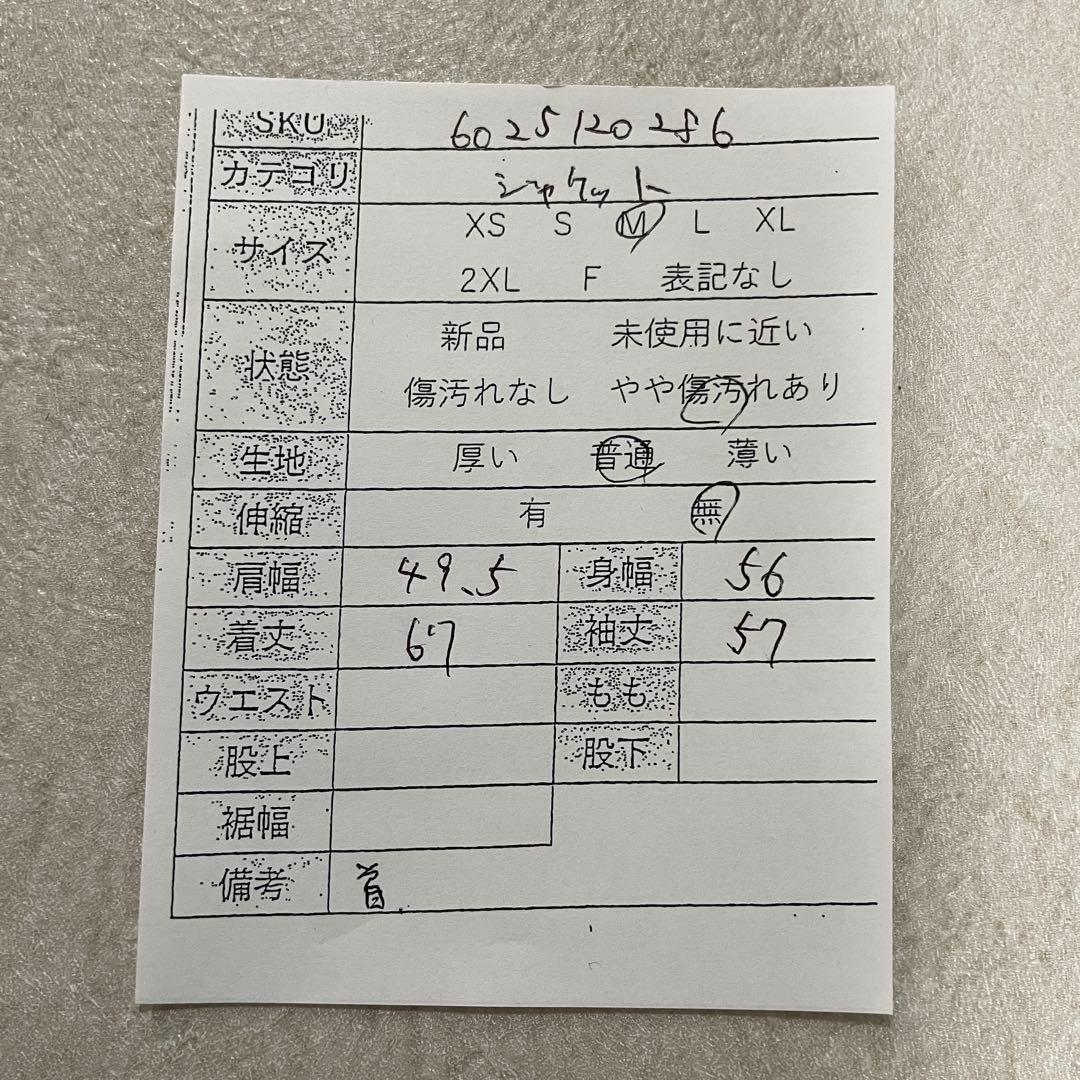 SKU 6025120286
カテゴリ ジャケット
サイズ XS S M L XL
2XL F 表記なし
状態 新品 未使用に近い
傷汚れなし やや傷汚れあり
生地 厚い 普通 薄い
伸縮 有 無
肩幅 49.5 身幅 56
着丈 67 袖丈 57
ウエスト もも
股上 股下
裾幅
備考 首